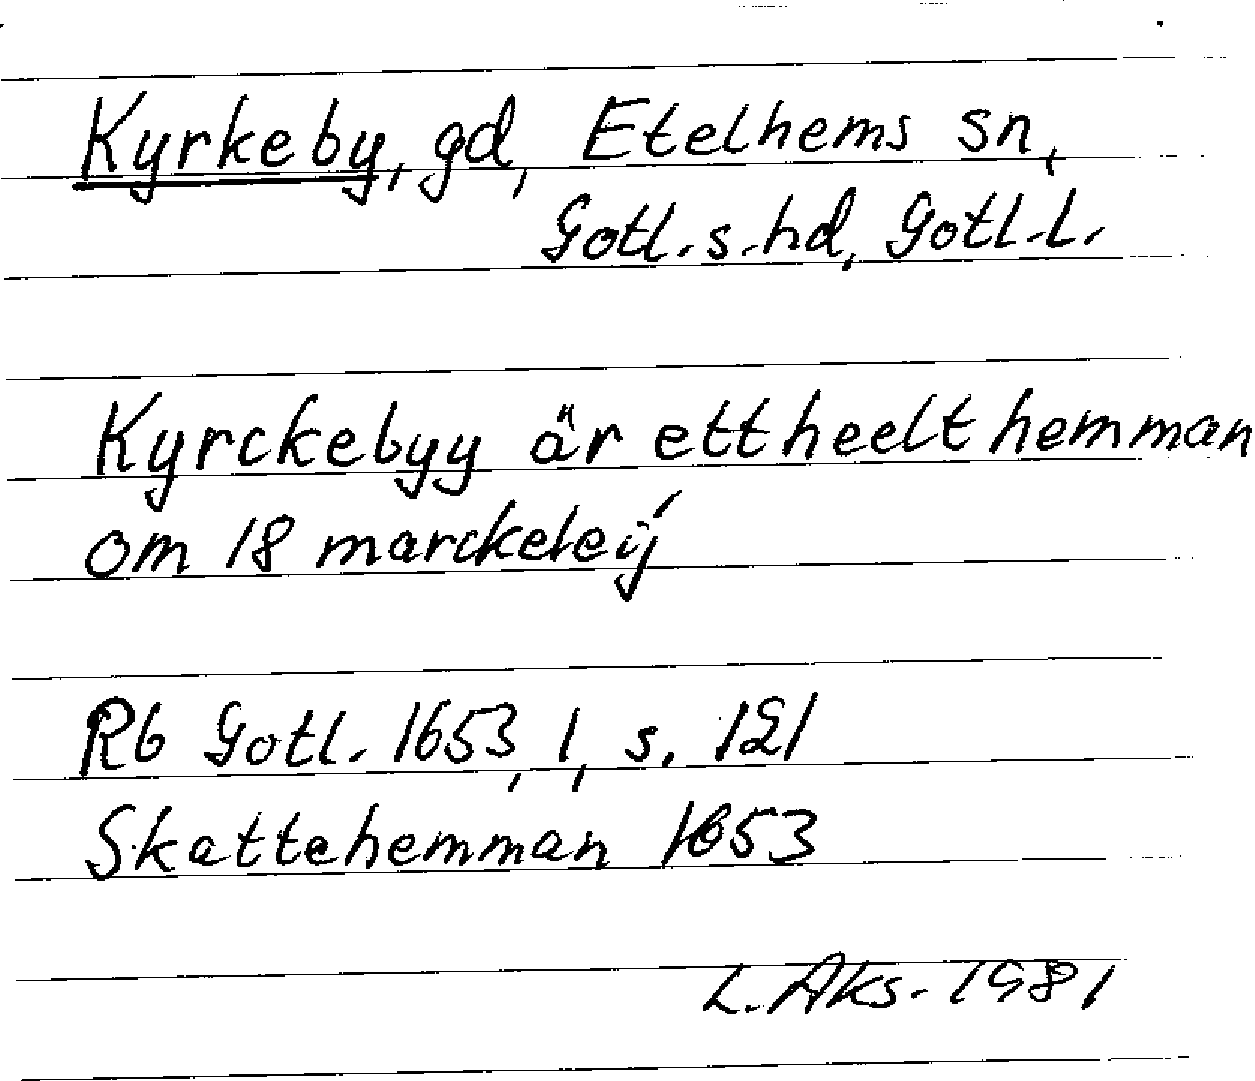 Kyrkeby, gd, Etelhems sn,
Gotl. s. hd, Gotl. l.
Kyrckebyy är ett heelt hemman
om 18 marckeleÿ
Rb Gotl. 1653, 1, s. 121
Skattehemman 1653
L. Aks. 1981